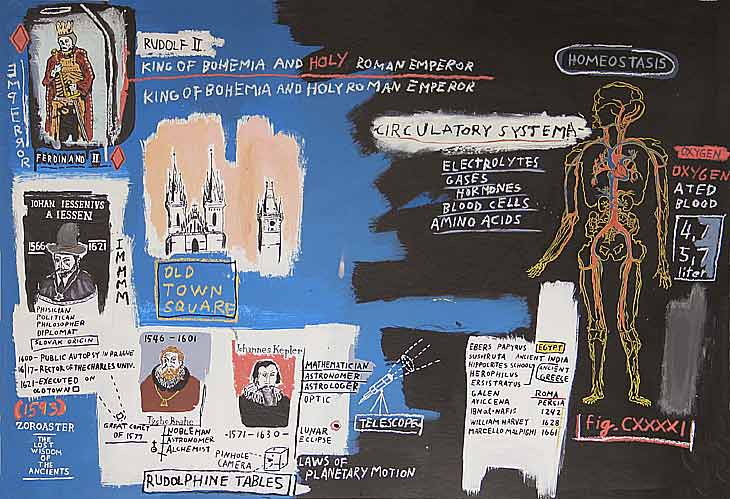 EMPERROR
FERDINAND II
RUDOLF II
KING OF BOHEMIA AND HOLY ROMAN EMPEROR
KING OF BOHEMIA AND HOLY ROMAN EMPEROR
HOMEOSTASIS
CIRCULATORY SYSTEMA
ELECTROLYTES
GASES
HORMONES
BLOOD CELLS
AMINO ACIDS
OXYGEN
OXYGEN
ATED
BLOOD
4,7
5,7
liter
JOHAN IESSENIUS
A IESSEN
1566
1621
IMMMM
PHISICIAN
POLITICAN
PHILOSOPHER
DIPLOMAT
SLOVAK ORIGIN
1600 - PUBLIC AUTOPSY IN PRAGUE
1617 - RECTOR OF THE CHARLES UNIV.
1621 - EXECUTED ON
OLD TOWN
(1593)
ZOROASTER
THE
LOST
WISDOM
OF THE
ANCIENTS
OLD
TOWN
SQUARE
1546 - 1601
Tycho Brahe
GREAT COMET
OF 1577
NOBLEMAN
ASTRONOMER
ALCHEMIST
Johannes Kepler
- 1571 - 1630 -
MATHEMATICIAN
ASTRONOMER
ASTROLOGER
OPTIC
LUNAR
ECLIPSE
TELESCOPE
PINHOLE
CAMERA
LAWS OF
PLANETARY MOTION
RUDOLPHINE TABLES
EBERS PAPYRUS EGYPT
SUSHRUTA ANCIENT INDIA
HIPPOCRITES SCHOOL
HEROPHILUS
ERSISTRATUS
ANCIENT
GREECE
GALEN ROMA
AVICENA PERSIA
IBN al-NAFIS 1242
WILLIAM HARVEY 1628
MARCELLO MALPIGHI 1661
fig. CXXXXI